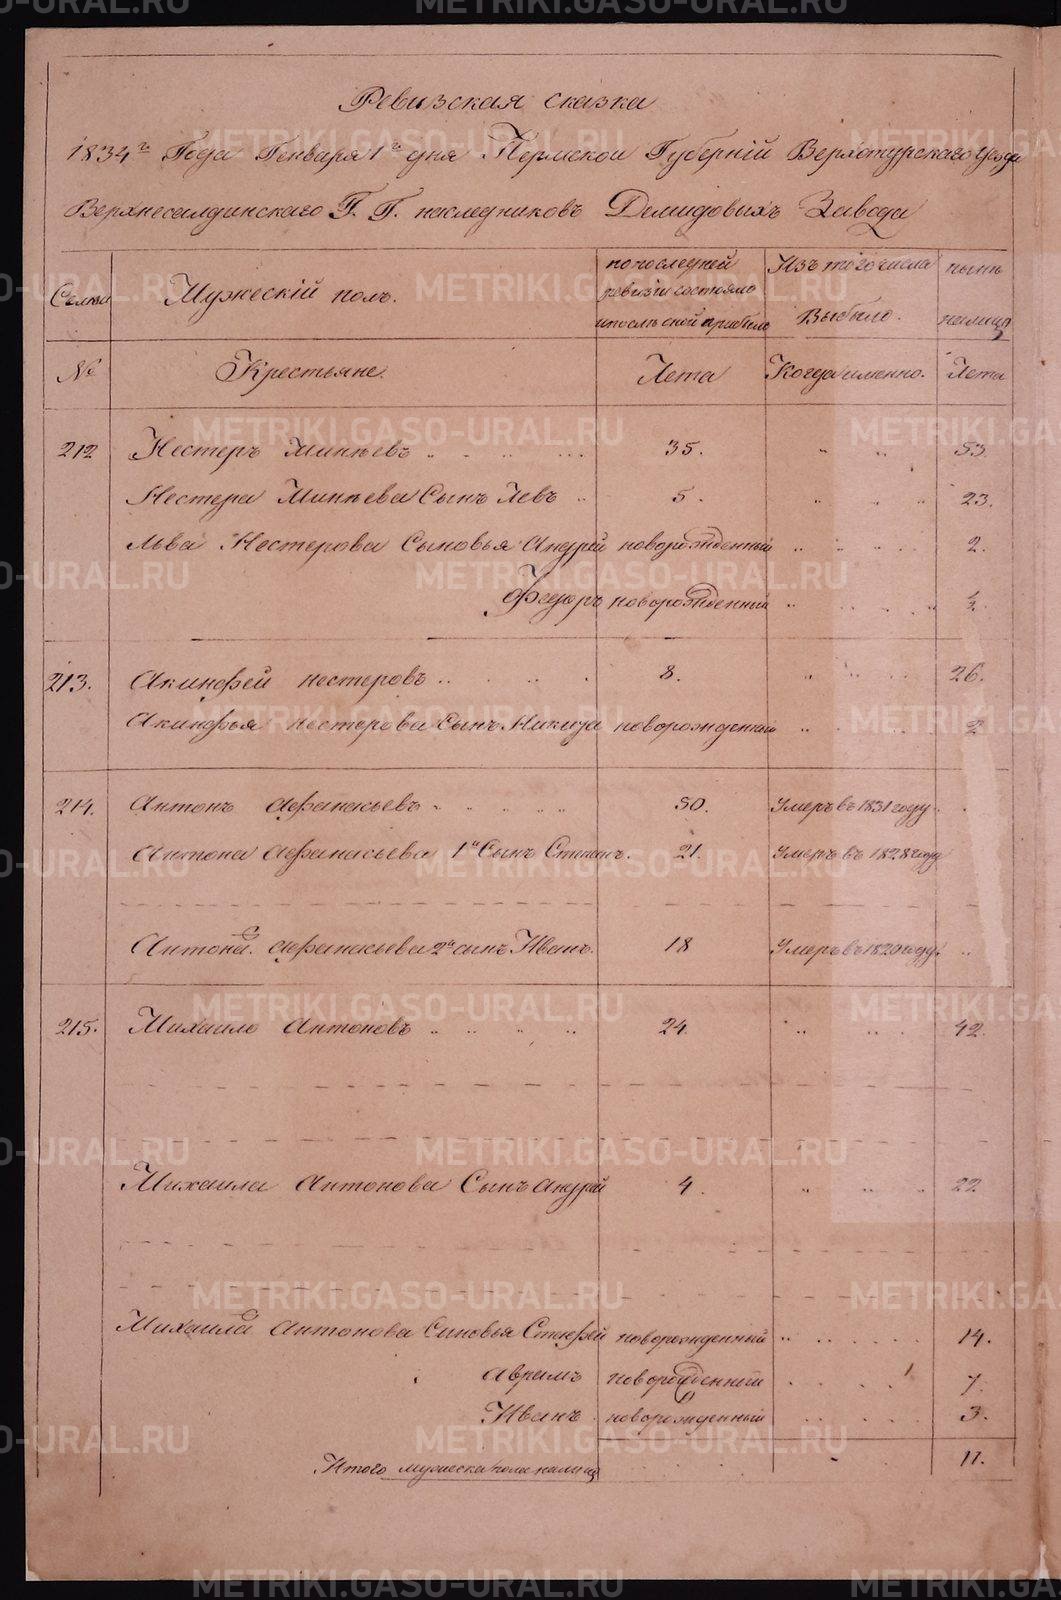 Ревизская сказка
1834го Года Генваря 1го дня Пермской Губерніи Верхотурскаго Уезда
Верхнесалдинскаго Г. Г. наследниковъ Демидовыхъ Завода
Семьи Мужескій полъ. по последней ревизіи состояло и после оной прибыло Изъ того числа Выбыло. ныне налицо
№ Крестьяне. Лета Когда именно. Лета
212 Нестеръ Минеевъ 35. 53.
Нестера Минеева Сынъ Левъ 5. 23.
Льва Нестерова Сыновья Андрей новорожденный 2.
Федоръ новорожденный
213. Акинфей нестеровъ 8. 26.
Акинфья нестерова Сынъ Никита новорожденный 2
214. Антонъ Афанасьевъ 50. Умеръ въ 1831 году
Антона Афанасьева 1й Сынъ Степанъ. 21. Умеръ въ 1828 году
Антона Афанасьева 2й сынъ Иванъ. 18 Умеръ въ 1820 году.
215. Михаило Антоновъ 24 42.
Михаила Антонова Сынъ Андрей 4. 22
Михаила Антонова Сыновья Стефей новорожденный 14.
Аврамъ новорожденный 7.
Иванъ новорожденный 3.
Итого мужеска пола налицо 11.
METRIKI.GASO-URAL.RU